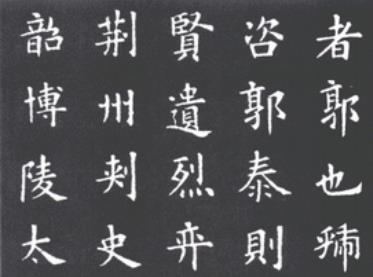 者郭也
咨郭泰則
賢遺烈弈
荆州刾史
韶博陵太